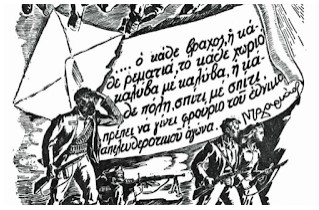 .... ὁ κάθε βράχος, ἡ κά-
θε ρεματιά, το κάθε χωριό
καλύβα με καλύβα, ἡ κα-
θε πόλη, σπίτι με σπίτι,
πρέπει να γίνει φρούριο τοῦ ἐθνικο
απελευθερωτικού αγώνα.